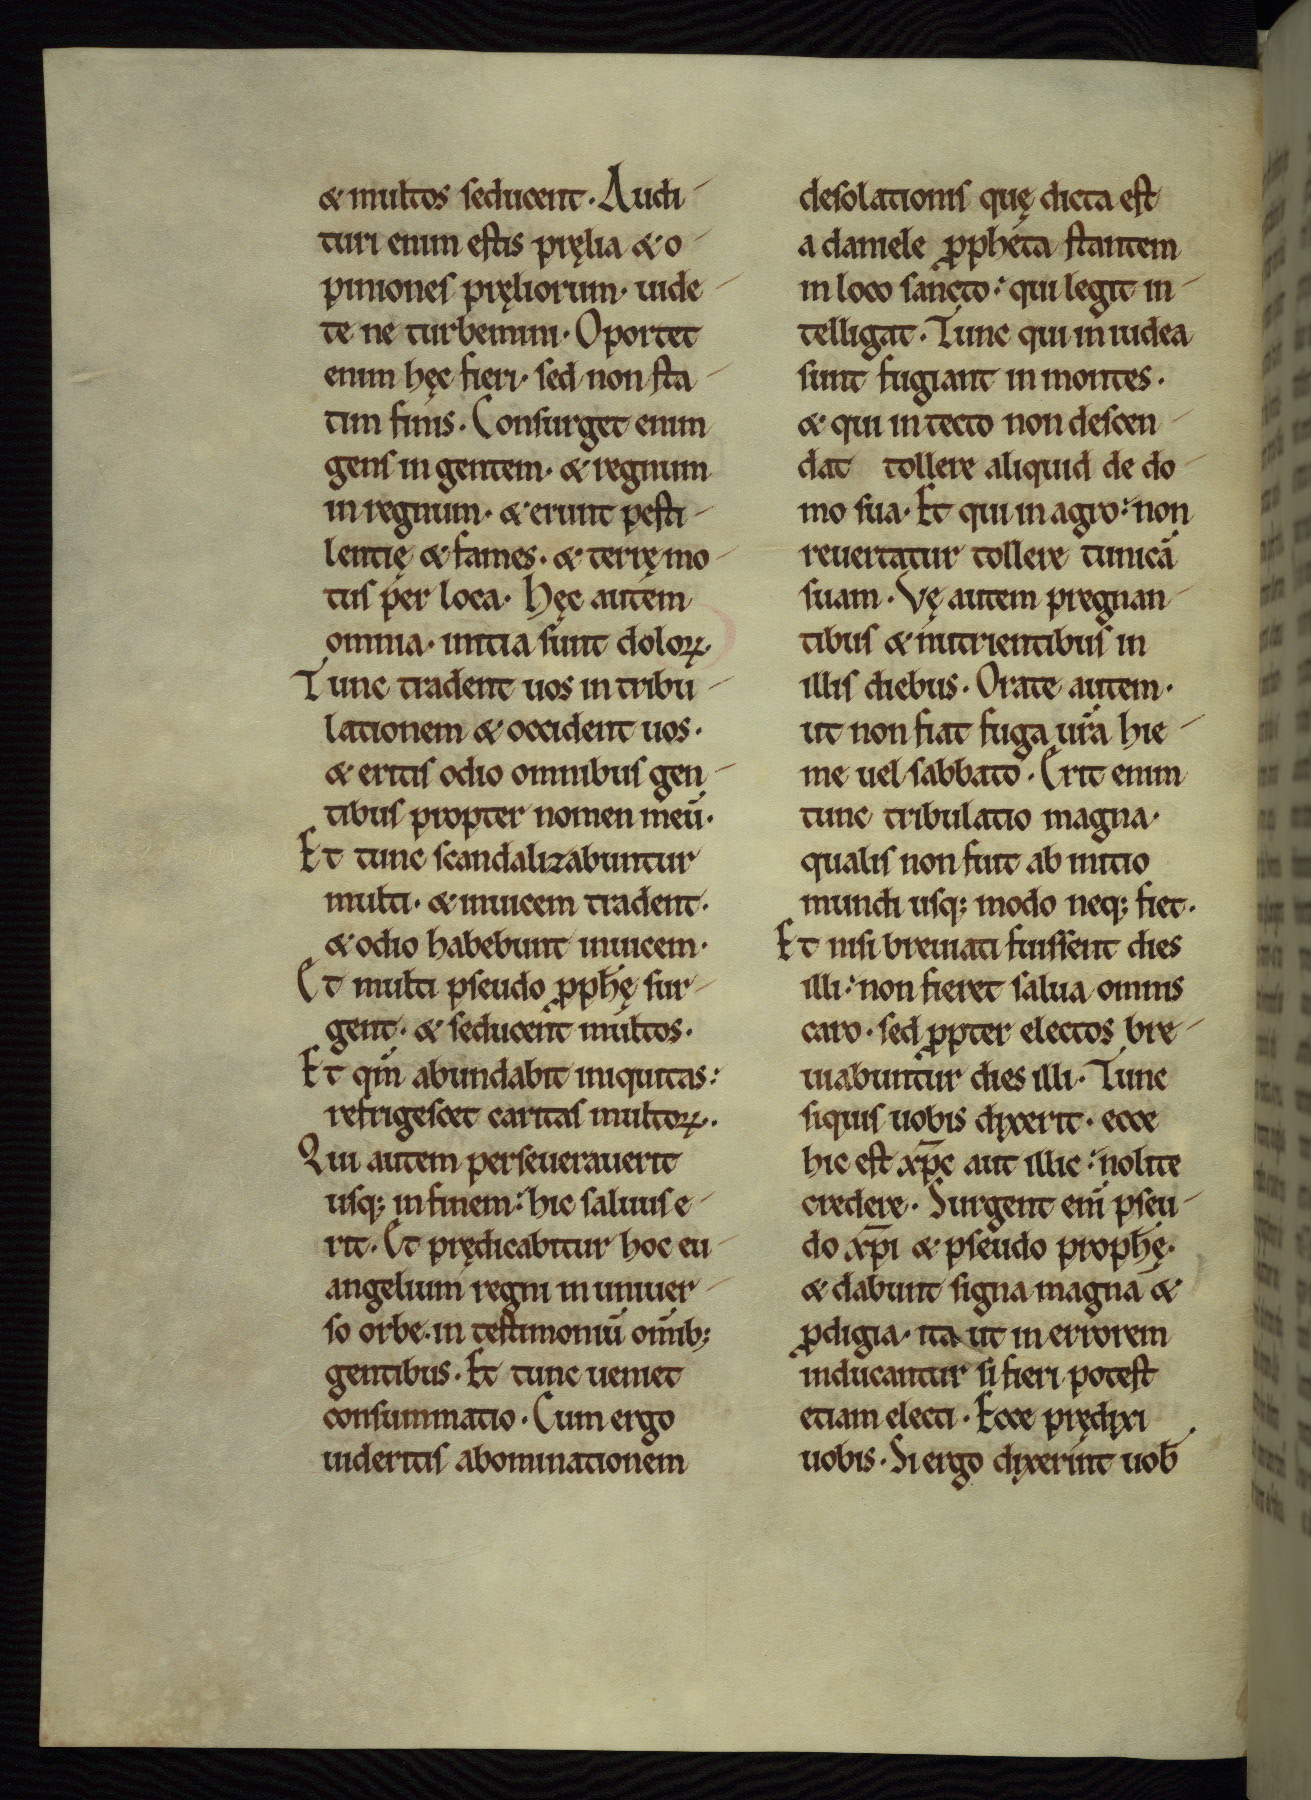 & multos seducent. Audi-
turi enim estis pręlia & o-
piniones pręliorum. uide-
te ne turbemini. Oportet
enim hęc fieri. sed non sta-
tim finis. Consurget enim
gens in gentem. & regnum
in regnum. & erunt pesti-
lentię & fames. & terrę mo-
tus per loca. Hęc autem
omnia. initia sunt doloꝝ.
Tunc tradent uos in tribu-
lationem & occident uos.
& eritis odio omnibus gen-
tibus propter nomen meū.
Et tunc scandalizabuntur
multi. & inuicem tradent.
& odio habebunt inuicem.
Et multi pseudo ꝓph̄ę sur-
gent. & seducent multos.
Et qm̄ abundabit iniquitas:
refrigescet caritas multoꝝ.
Qui autem perseuerauerit
usq; in finem: hic saluus e-
rit. Et prędicabitur hoc eu-
angelium regni in uniuer-
so orbe. in testimoniū om̄ib;
gentibus. Et tunc ueniet
consummatio. Cum ergo
uideritis abominationem
desolationis quę dicta est
a daniele ꝓpheta stantem
in loco sancto: qui legit in-
telligat. Tunc qui in iudea
sunt fugiant in montes.
& qui in tecto non descen-
dat tollere aliquid de do-
mo sua. Et qui in agro: non
reuertatur tollere tunicā
suam. Vę autem pregnan-
tibus & nutrientibus in
illis diebus. Orate autem.
ut non fiat fuga ur̄a hie-
me uel sabbato. Erit enim
tunc tribulatio magna.
qualis non fuit ab initio
mundi usq; modo neq; fiet.
Et nisi breuiati fuissent dies
illi: non fieret salua omnis
caro. sed ꝓpter electos bre-
uiabuntur dies illi. Tunc
siquis uobis dixerit. ecce
hic est xp̄c aut illic: nolite
credere. Surgent eni̅ pseu-
do xp̄i & pseudo proph̄ę.
& dabunt signa magna &
ꝓdigia. ita ut in errorem
inducantur si fieri potest
etiam electi. Ecce prędixi
uobis. Si ergo dixerint uob̄